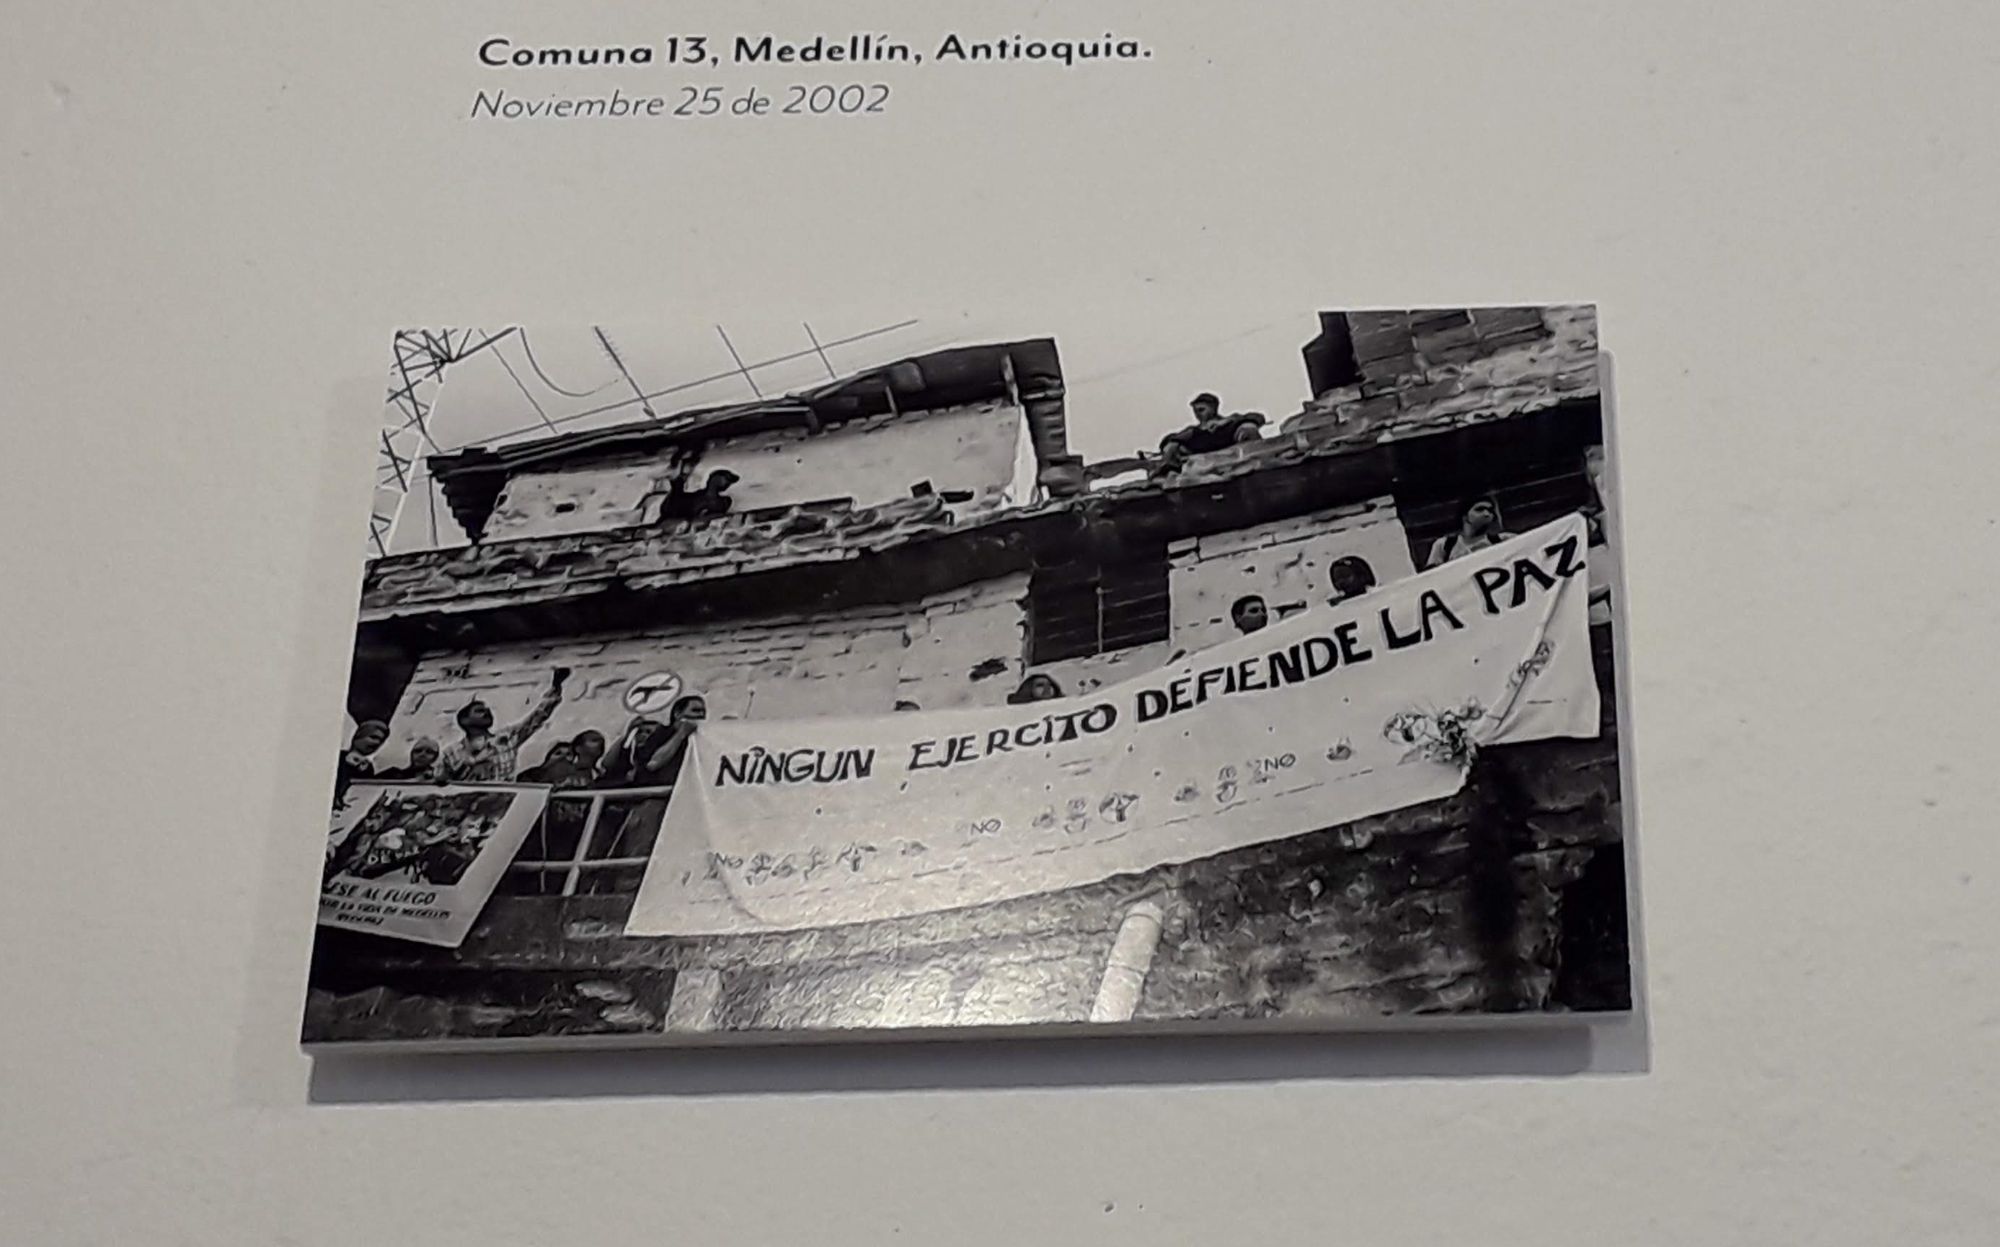 Comuna 13, Medellín, Antioquia.
Noviembre 25 de 2002
NINGUN EJERCITO DEFIENDE LA PAZ
NO
NO
NO
ESE AL FUEGO
LA VIDA DE MEDELLIN